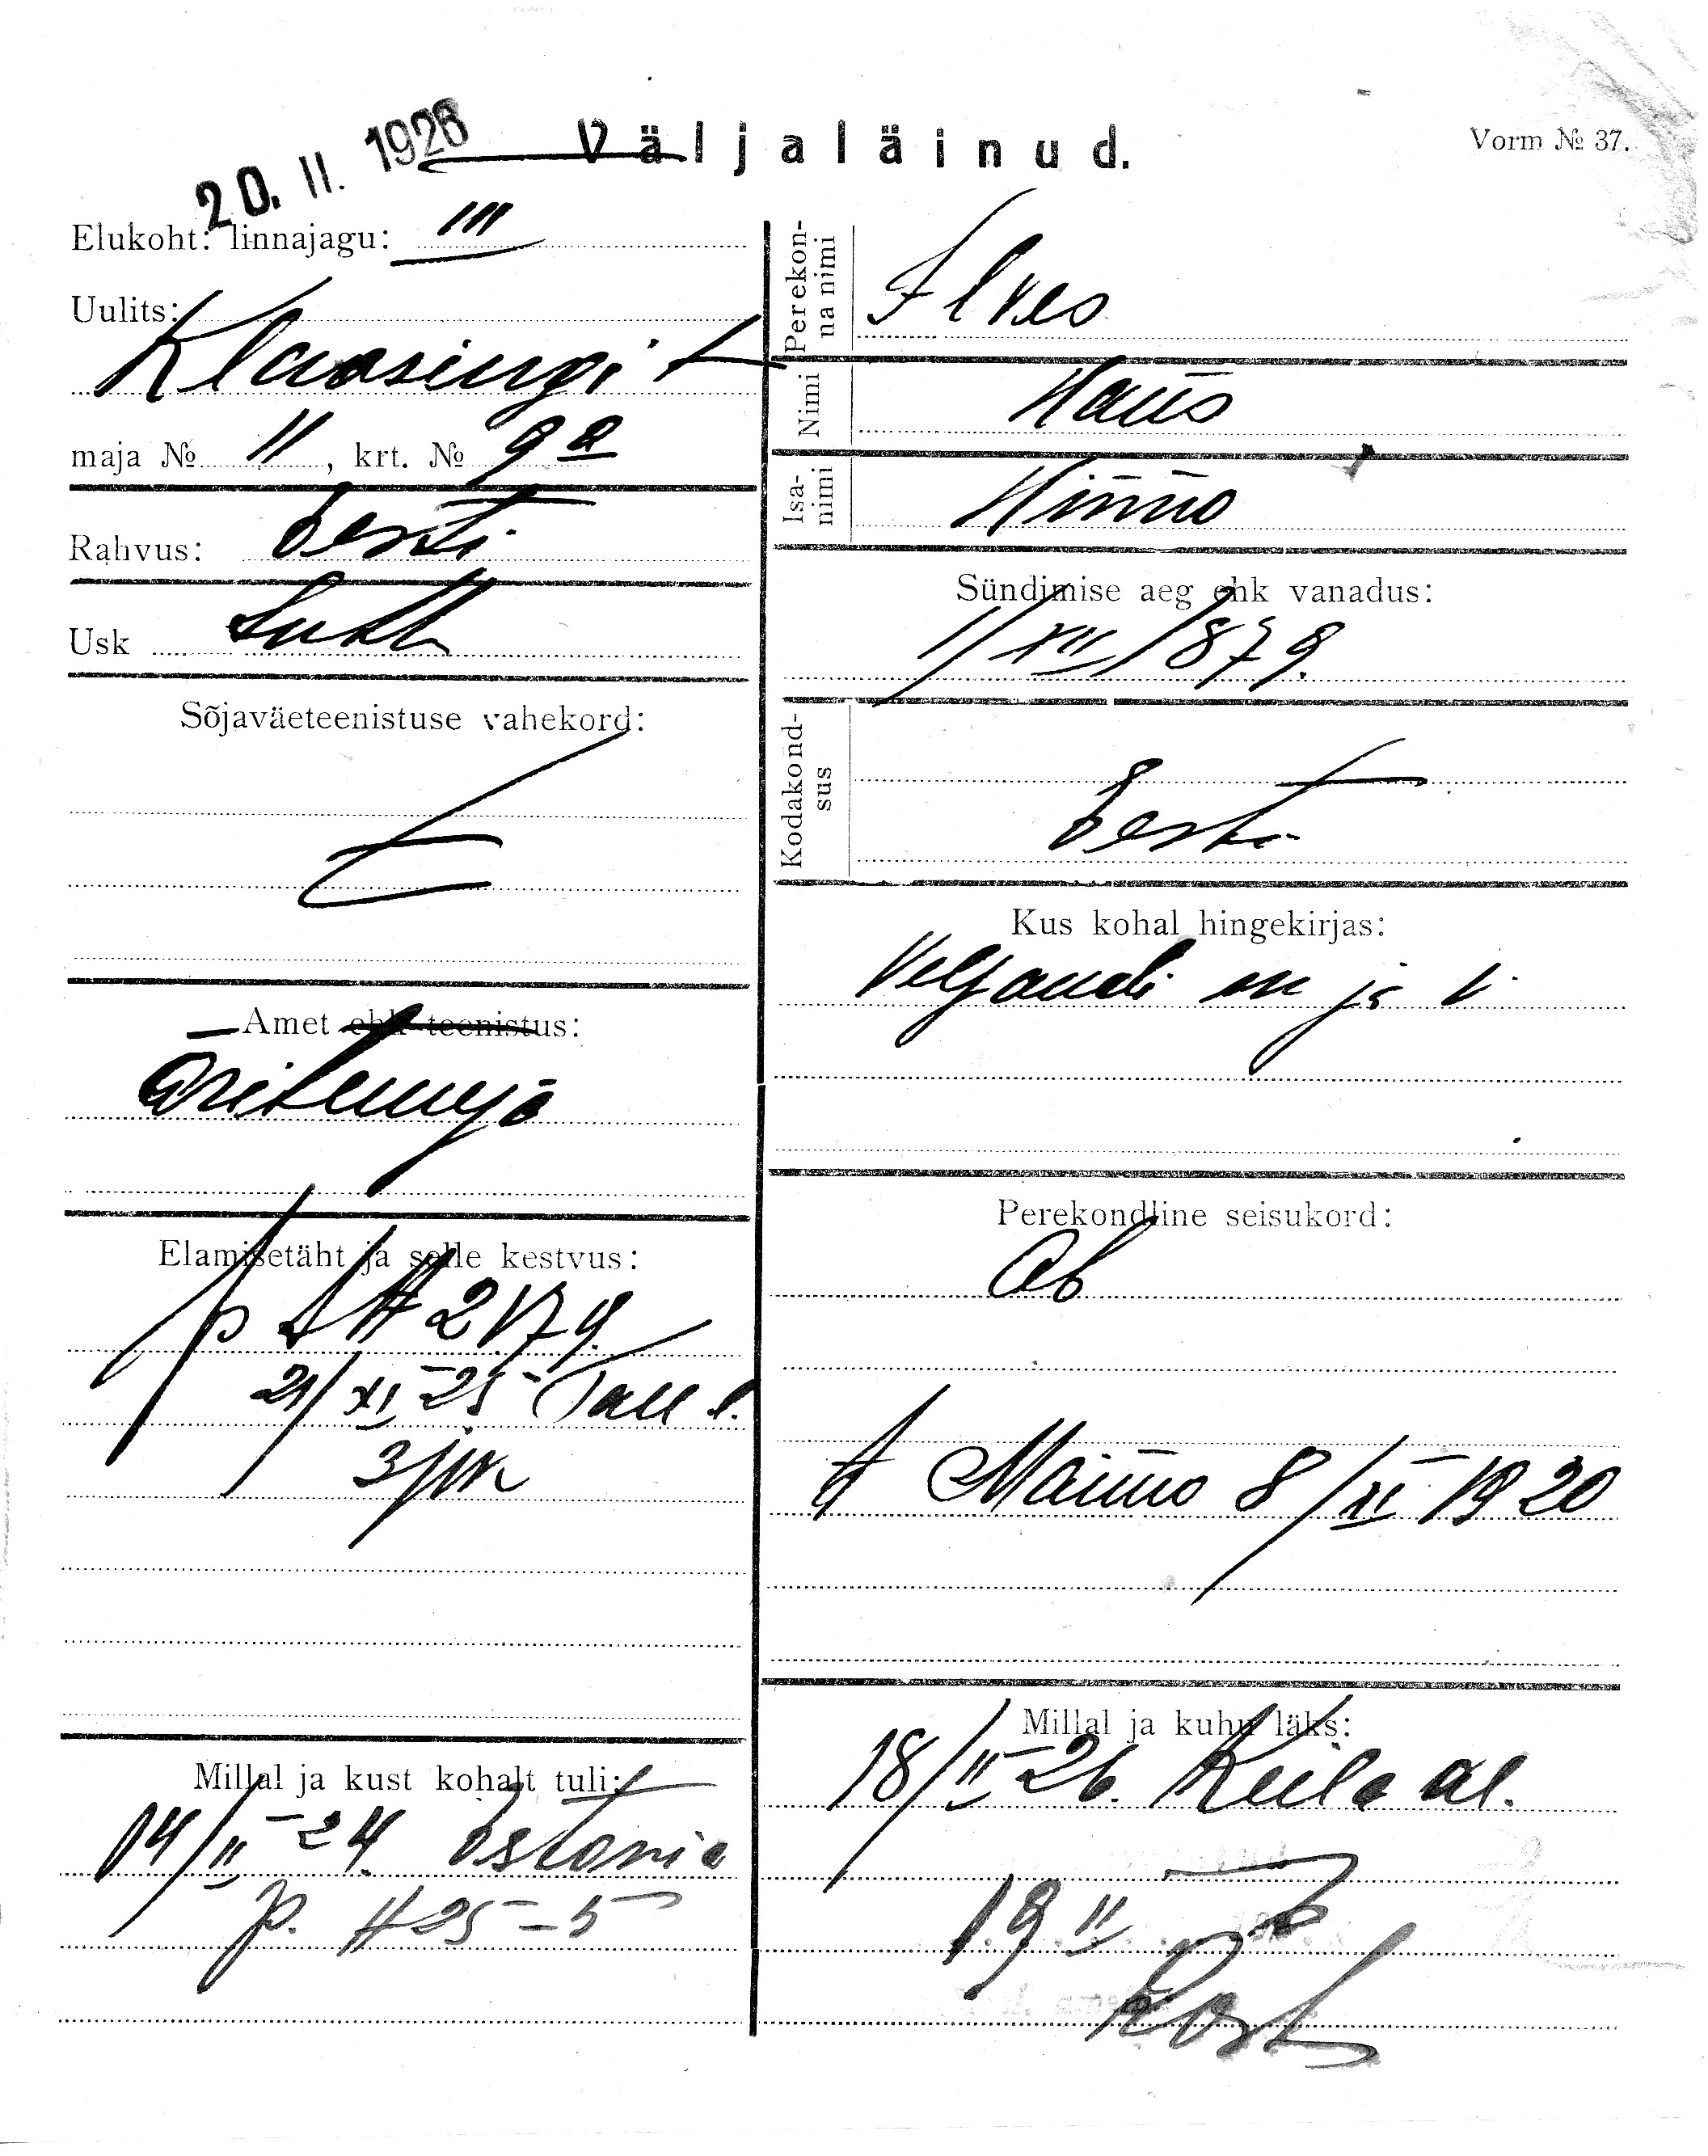 20. II. 1926
Väljaläinud.
Vorm № 37.
Elukoht: linnajagu: III
Uulits:
Klaosingi t
maja № 11, krt. № 9a
Rahvus: Eesti
Usk Luth
Sõjaväeteenistuse vahekord:
Amet ehk teenistus:
Äriteenija
Elamisetäht ja selle kestvus:
p A # 2179.
21/XI-25 Tall l.
3 jsk
Millal ja kust kohalt tuli:
14/II-24. Estonia
p. # 25-5
Perekonna nimi Ilves
Nimi Hans
Isanimi Hinno
Sündimise aeg ehk vanadus:
1/XII 1879.
Kodakondsus
Eesti
Kus kohal hingekirjas:
Veljandi m ja v
Perekondline seisukord:
Ab
t Maimo 8/XI-1920
Millal ja kuhu läks:
18/II-26. Keila al.
19 II